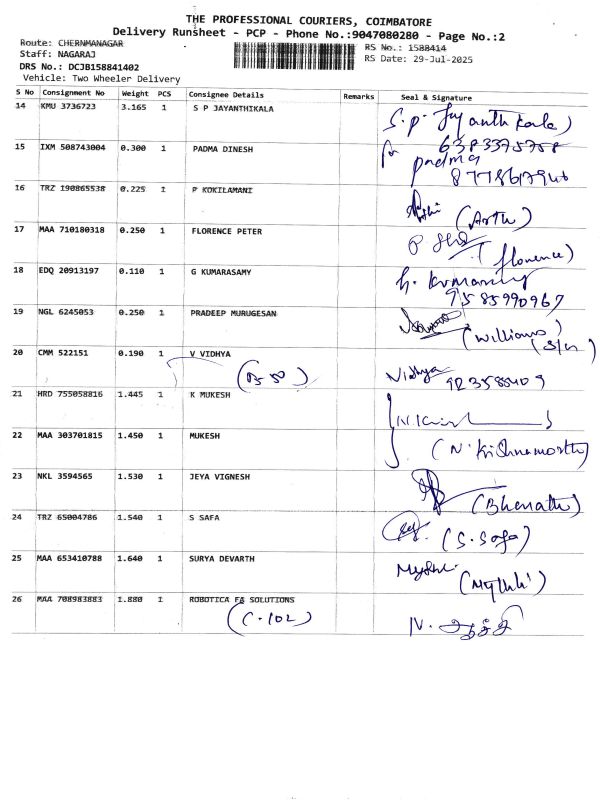 THE PROFESSIONAL COURIERS, COIMBATORE
Delivery Runsheet - PCP - Phone No.:9047080280 - Page No.:2
Route: CHERNMANAGAR
Staff: NAGARAJ
DRS No.: DCJB158841402
Vehicle: Two Wheeler Delivery
RS No.: 1588414
RS Date: 29-Jul-2025
S No Consignment No Weight PCS Consignee Details Remarks Seal & Signature
14 KMU 3736723 3.165 1 S P JAYANTHIKALA S.P. Jayanthikala)
6383375758
15 IXM 508743004 0.300 1 PADMA DINESH for padma
16 TRZ 190865538 0.225 1 P KOKILAMANI
17 MAA 710180318 0.250 1 FLORENCE PETER (florence)
18 EDQ 20913197 0.110 1 G KUMARASAMY
9585990967
19 NGL 6245053 0.250 1 PRADEEP MURUGESAN (Williams)
20 CMM 522151 0.190 1 V VIDHYA Vidhya
(B-50)
21 HRD 755058816 1.445 1 K MUKESH
22 MAA 303701815 1.450 1 MUKESH (N. Krishnamoorthy)
23 NKL 3594565 1.530 1 JEYA VIGNESH
24 TRZ 65004786 1.540 1 S SAFA (S. Safa)
25 MAA 653410788 1.640 1 SURYA DEVARTH
26 MAA 708983883 1.880 1 ROBOTICA FA SOLUTIONS
(C-102)